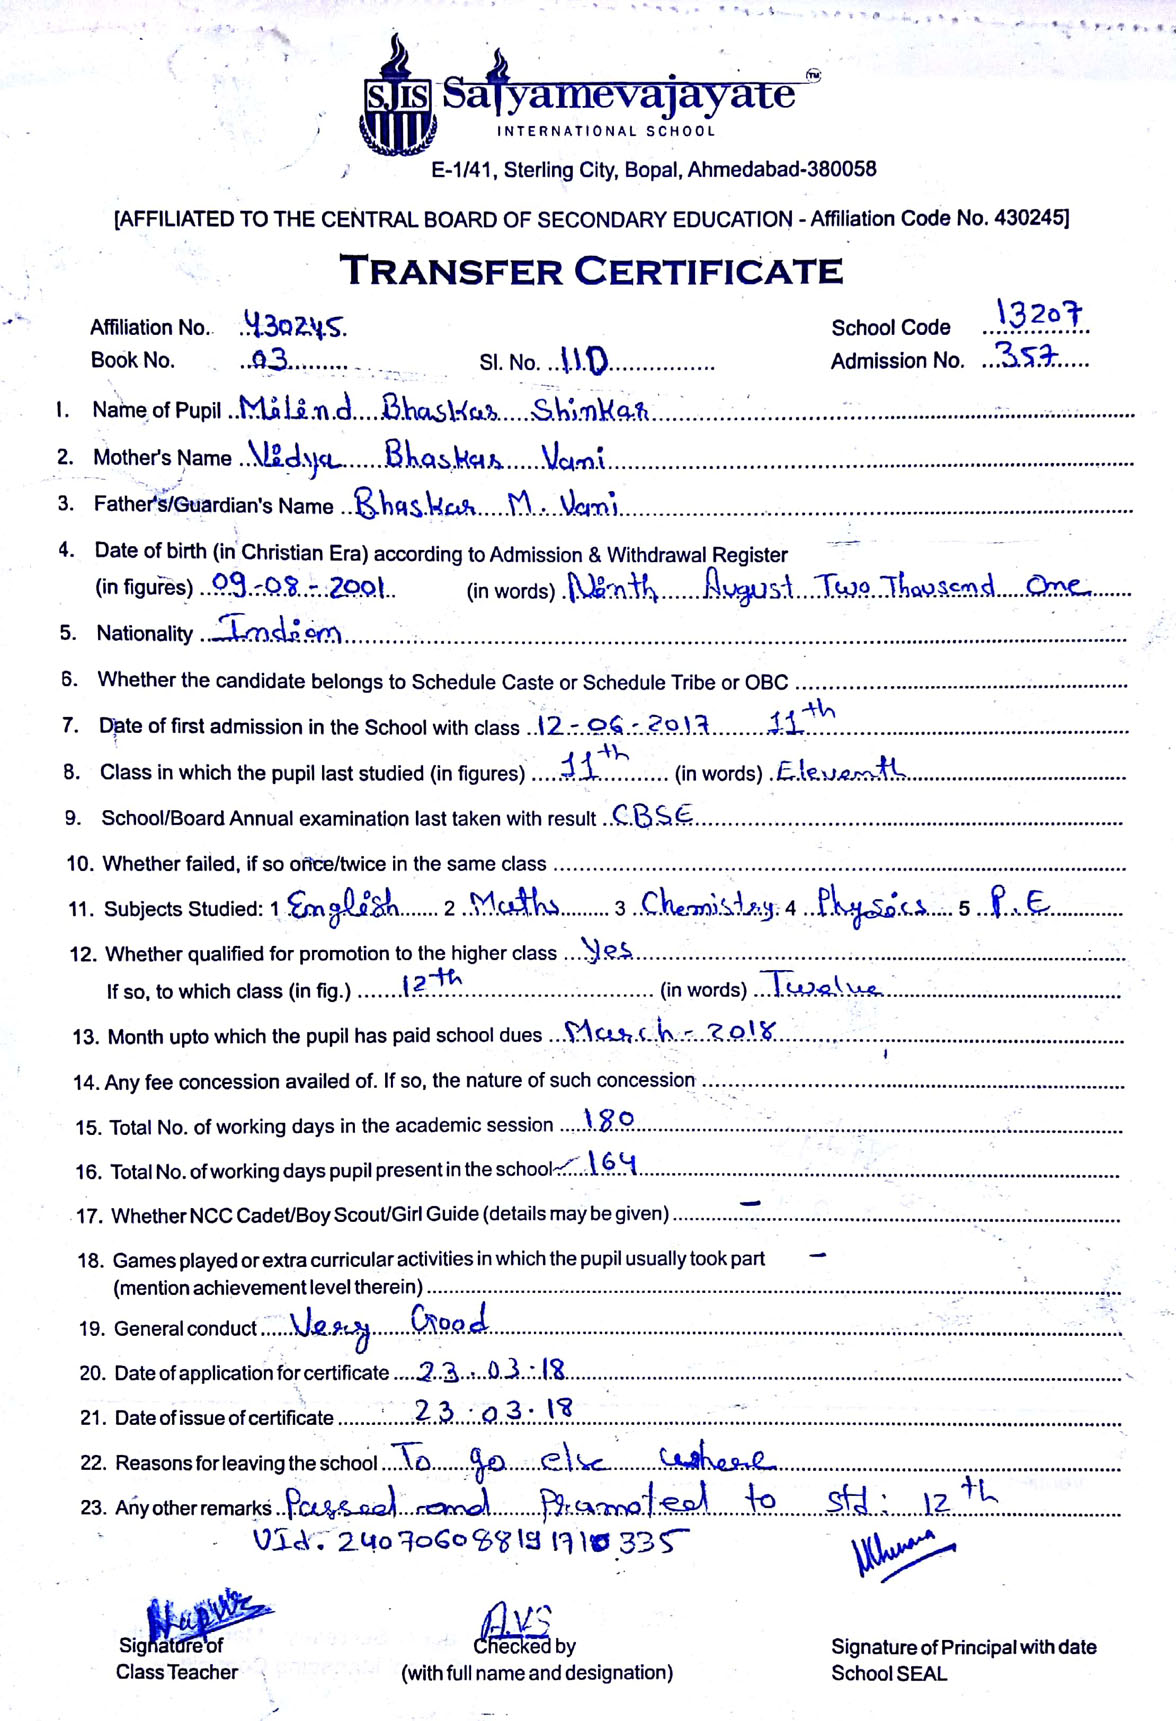 SJIS Satyamevajayate TM
INTERNATIONAL SCHOOL
E-1/41, Sterling City, Bopal, Ahmedabad-380058
[AFFILIATED TO THE CENTRAL BOARD OF SECONDARY EDUCATION - Affiliation Code No. 430245]
TRANSFER CERTIFICATE
Affiliation No. 430245. School Code 13207
Book No. 03 Sl. No. 110 Admission No. 357
1. Name of Pupil Milind Bhaskar Shinkar
2. Mother's Name Vidya Bhaskar Vani
3. Father's/Guardian's Name Bhaskar M. Vani
4. Date of birth (in Christian Era) according to Admission & Withdrawal Register
(in figures) 09-08-2001 (in words) Ninth August Two Thousand One
5. Nationality Indian
6. Whether the candidate belongs to Schedule Caste or Schedule Tribe or OBC
7. Date of first admission in the School with class 12-06-2017 11th
8. Class in which the pupil last studied (in figures) 11th (in words) Eleventh
9. School/Board Annual examination last taken with result CBSE
10. Whether failed, if so once/twice in the same class
11. Subjects Studied: 1 English 2 Maths 3 Chemistry 4 Physics 5 P.E
12. Whether qualified for promotion to the higher class Yes
If so, to which class (in fig.) 12th (in words) Twelve
13. Month upto which the pupil has paid school dues March-2018
14. Any fee concession availed of. If so, the nature of such concession
15. Total No. of working days in the academic session 180
16. Total No. of working days pupil present in the school 164
17. Whether NCC Cadet/Boy Scout/Girl Guide (details may be given) -
18. Games played or extra curricular activities in which the pupil usually took part -
(mention achievement level therein)
19. General conduct Very Good
20. Date of application for certificate 23.03.18
21. Date of issue of certificate 23.03.18
22. Reasons for leaving the school To go else where
23. Any other remarks Passed and Promoted to std: 12th
UId. 
A.V.S
Signature of Checked by Signature of Principal with date
Class Teacher (with full name and designation) School SEAL